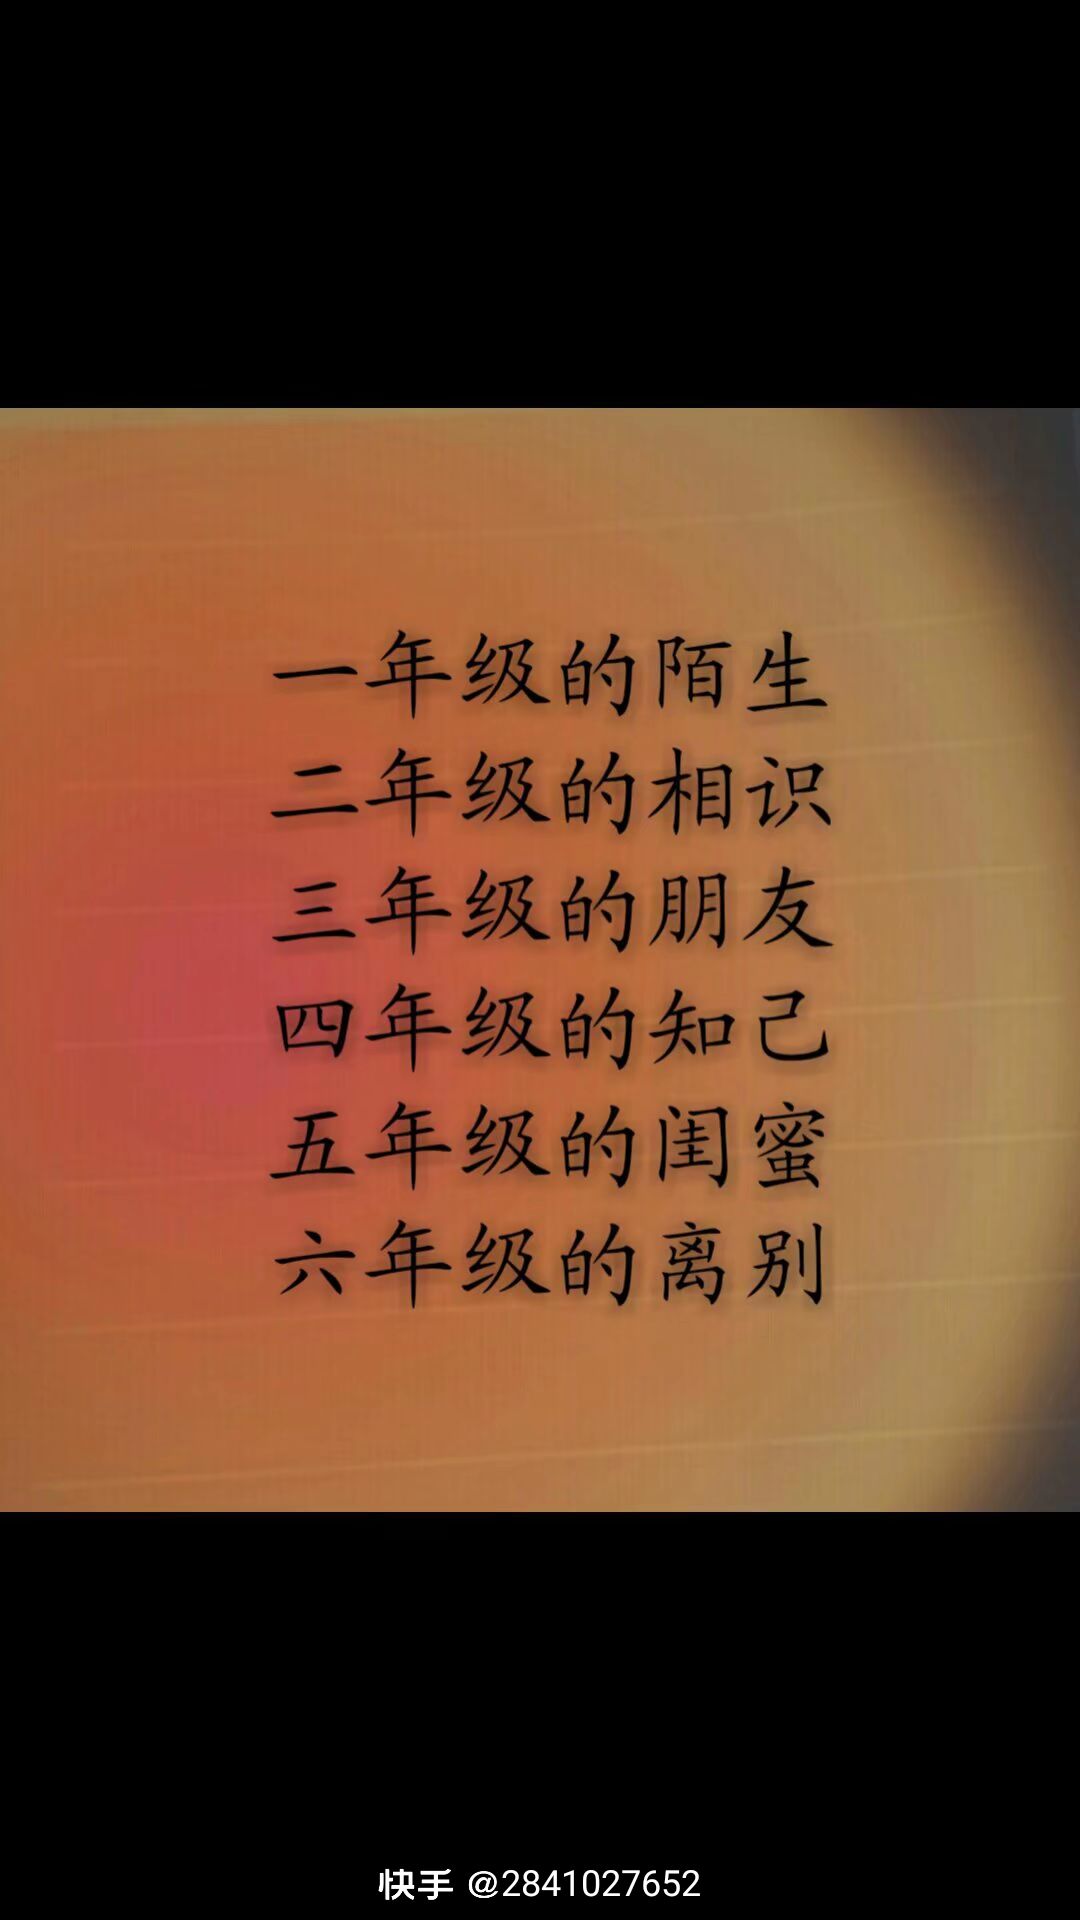 一年级的陌生
二年级的相识
三年级的朋友
四年级的知己
五年级的闺蜜
六年级的离别
快手 @2841027652